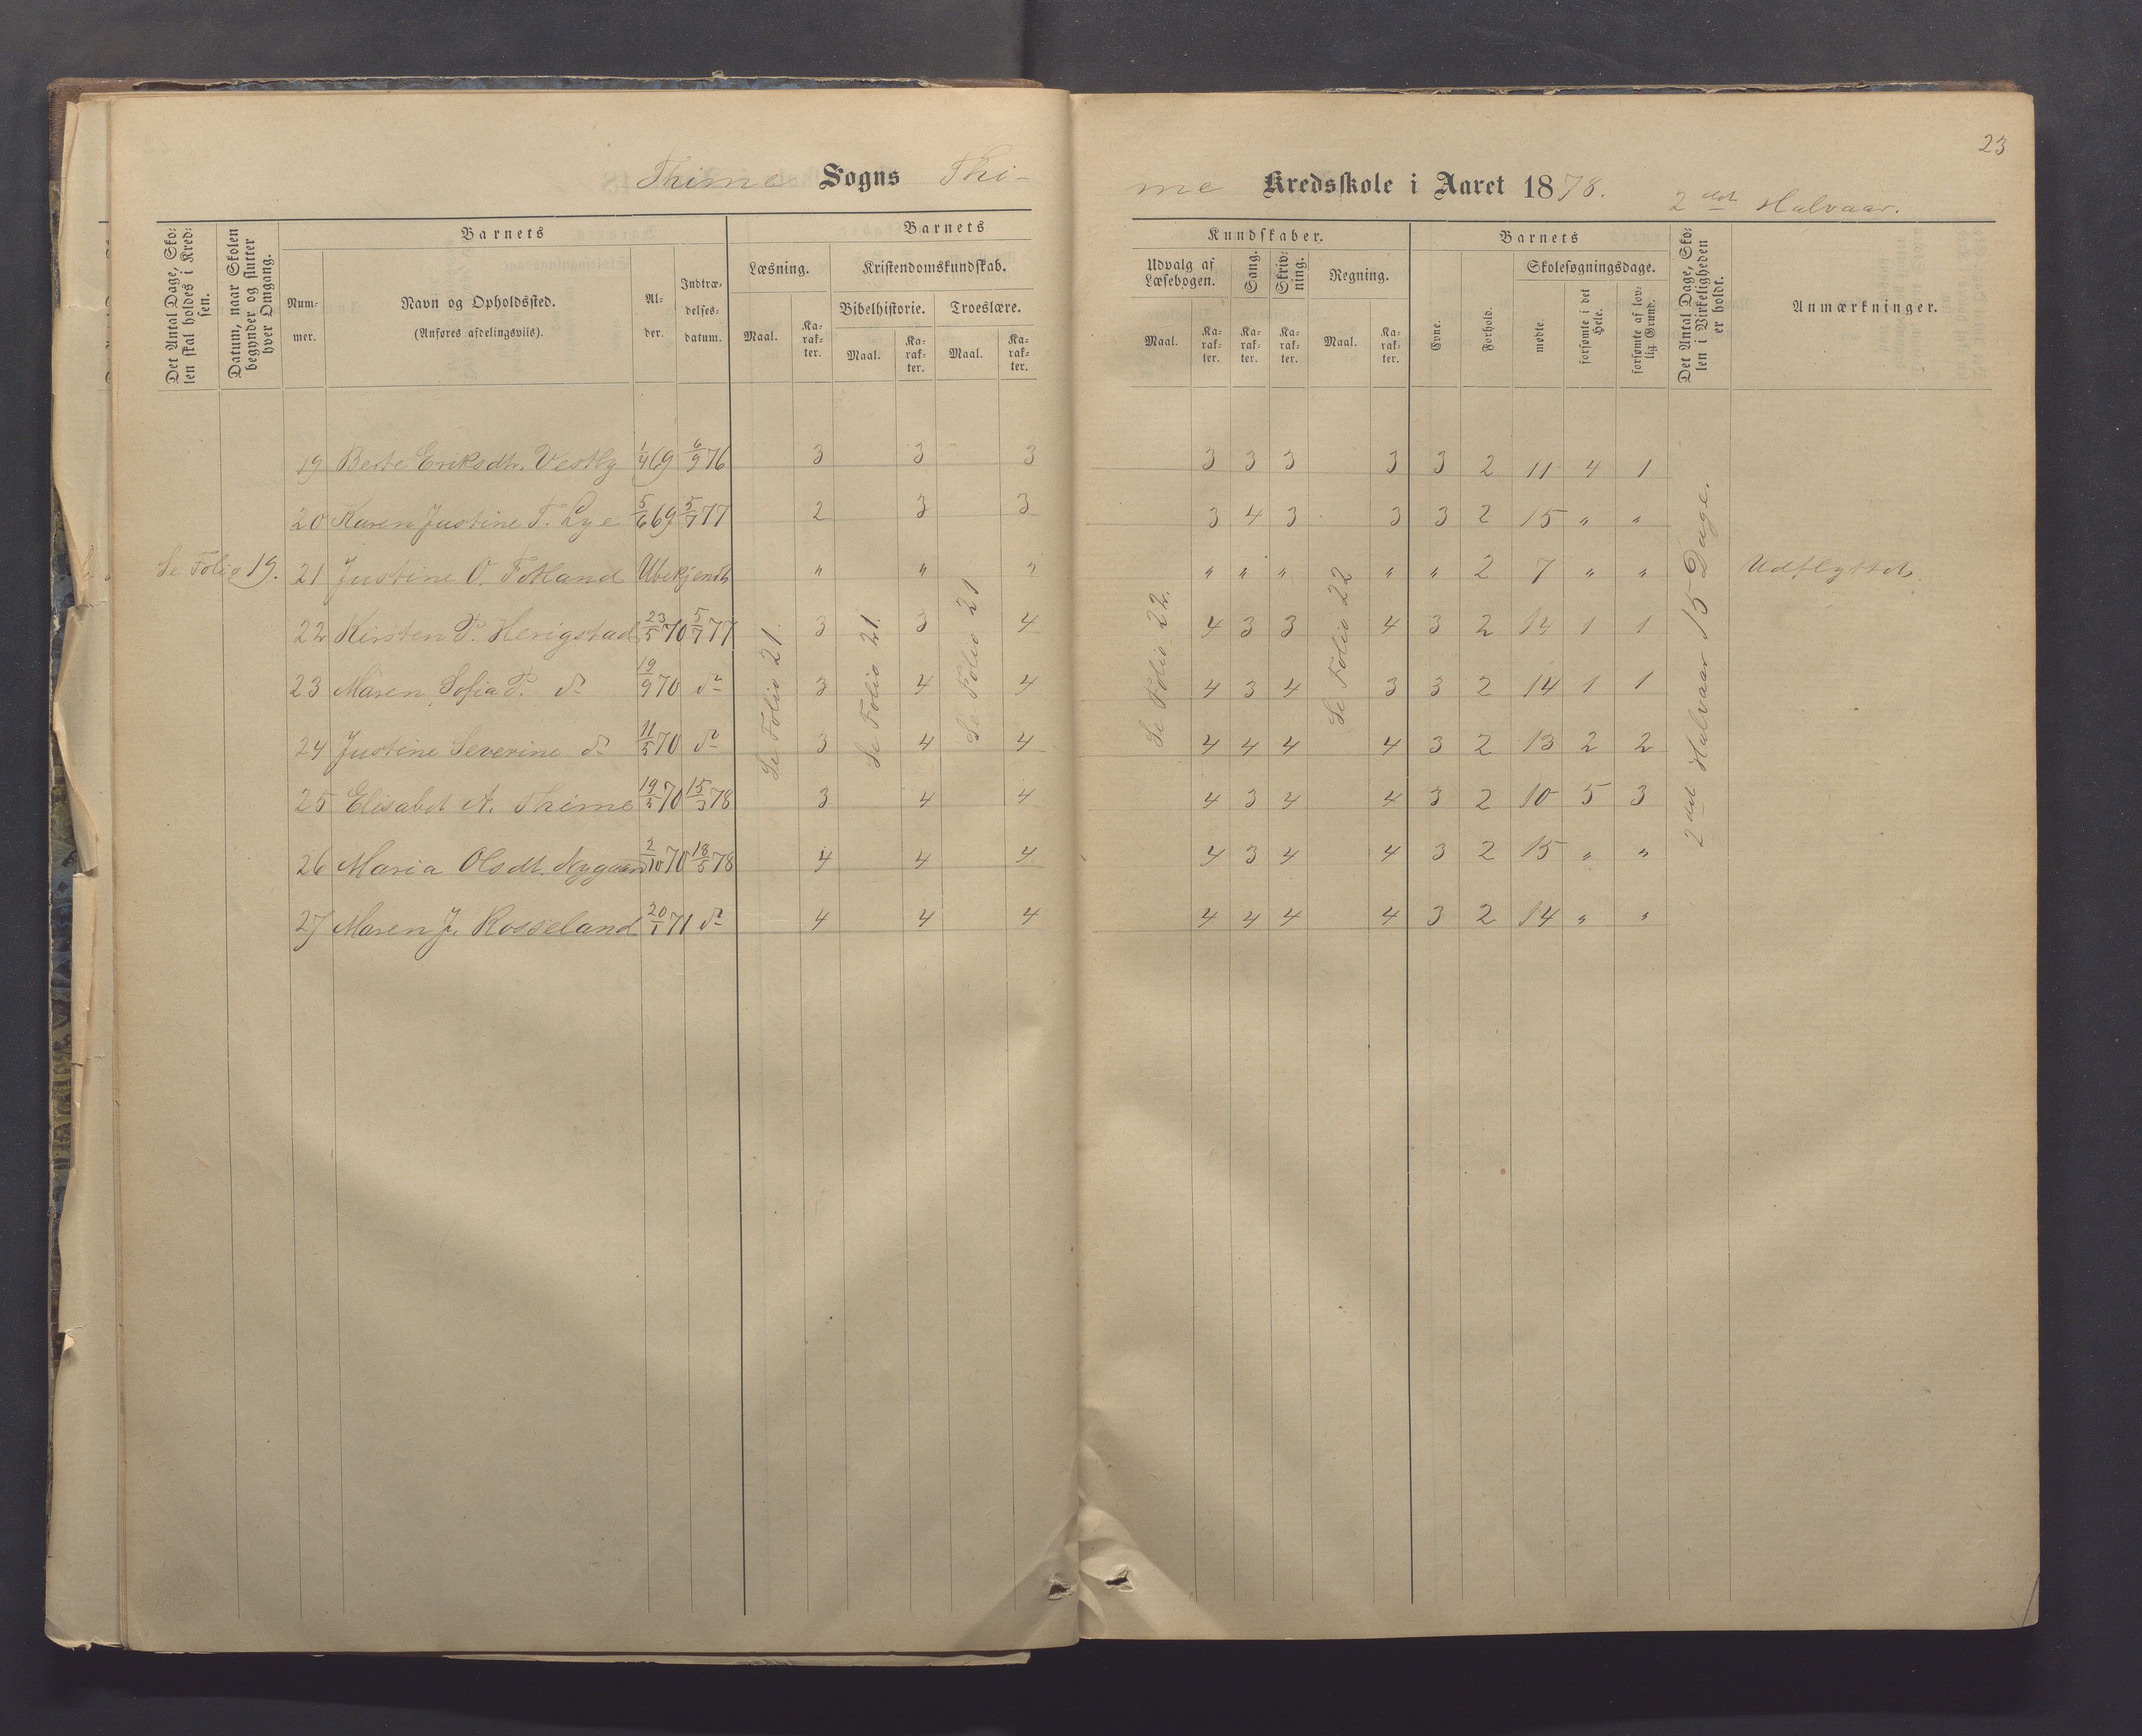 23
Thime Sogns Thi-
me Kredsskole i Aaret 1878. 2det Halvaar.
Det Antal Dage, Sko-
len skal holdes i Kred-
sen.
Datum, naar Skolen
begynder og slutter
hver Omgang.
Barnets
Num-
mer.
Navn og Opholdssted.
(Anføres afdelingsviis).
Al-
der.
Indtræ-
delses-
datum.
Barnets
Læsning.
Maal.
Ka-
rak-
ter.
Kristendomskundskab.
Bibelhistorie.
Maal.
Ka-
rak-
ter.
Troeslære.
Maal.
Ka-
rak-
ter.
Kundskaber.
Udvalg af
Læsebogen.
Maal.
Ka-
rak-
ter.
Sang.
Ka-
rak-
ter.
Skriv-
ning.
Ka-
rak-
ter.
Regning.
Maal.
Ka-
rak-
ter.
Barnets
Evne.
Forhold.
Skolesøgningsdage.
mødte.
forsømte i det
Hele.
forsømte af lov-
lig Grund.
Det Antal Dage, Sko-
len i Virkeligheden
er holdt.
Anmærkninger.
19 Berte Eriksdtr. Vestly 1/4 69 6/9 76 3 3 3 3 3 3 3 3 2 11 4 1
20 Karen Justine T. Lye 5/6 69 5/7 77 2 3 3 3 4 3 3 3 2 15 " "
Se Folio 19. 21 Justine O. Fotland Ubekjendt " " " " " " " " 2 7 " " Udflyttet.
22 Kirsten P. Herigstad 23/5 70 5/7 77 3 3 4 4 3 3 4 3 2 14 1 1
23 Maren Sofia P. do 19/9 70 do 3 4 4 4 3 4 3 3 2 14 1 1
24 Justine Severine do 11/5 70 do 3 4 4 4 4 4 4 3 2 13 2 2
25 Elisabet A. Thime 19/5 70 15/3 78 3 4 4 4 3 4 4 3 2 10 5 3
26 Maria Olsdt. Nygaard 2/10 70 18/5 78 4 4 4 4 3 4 4 3 2 15 " "
27 Maren J. Rosseland 20/1 71 do 4 4 4 4 4 4 4 3 2 14 " "
Se Folio 21.
Se Folio 21.
Se Folio 21
Se Folio 22.
Se Folio 22
2det Halvaar 15 Dage.